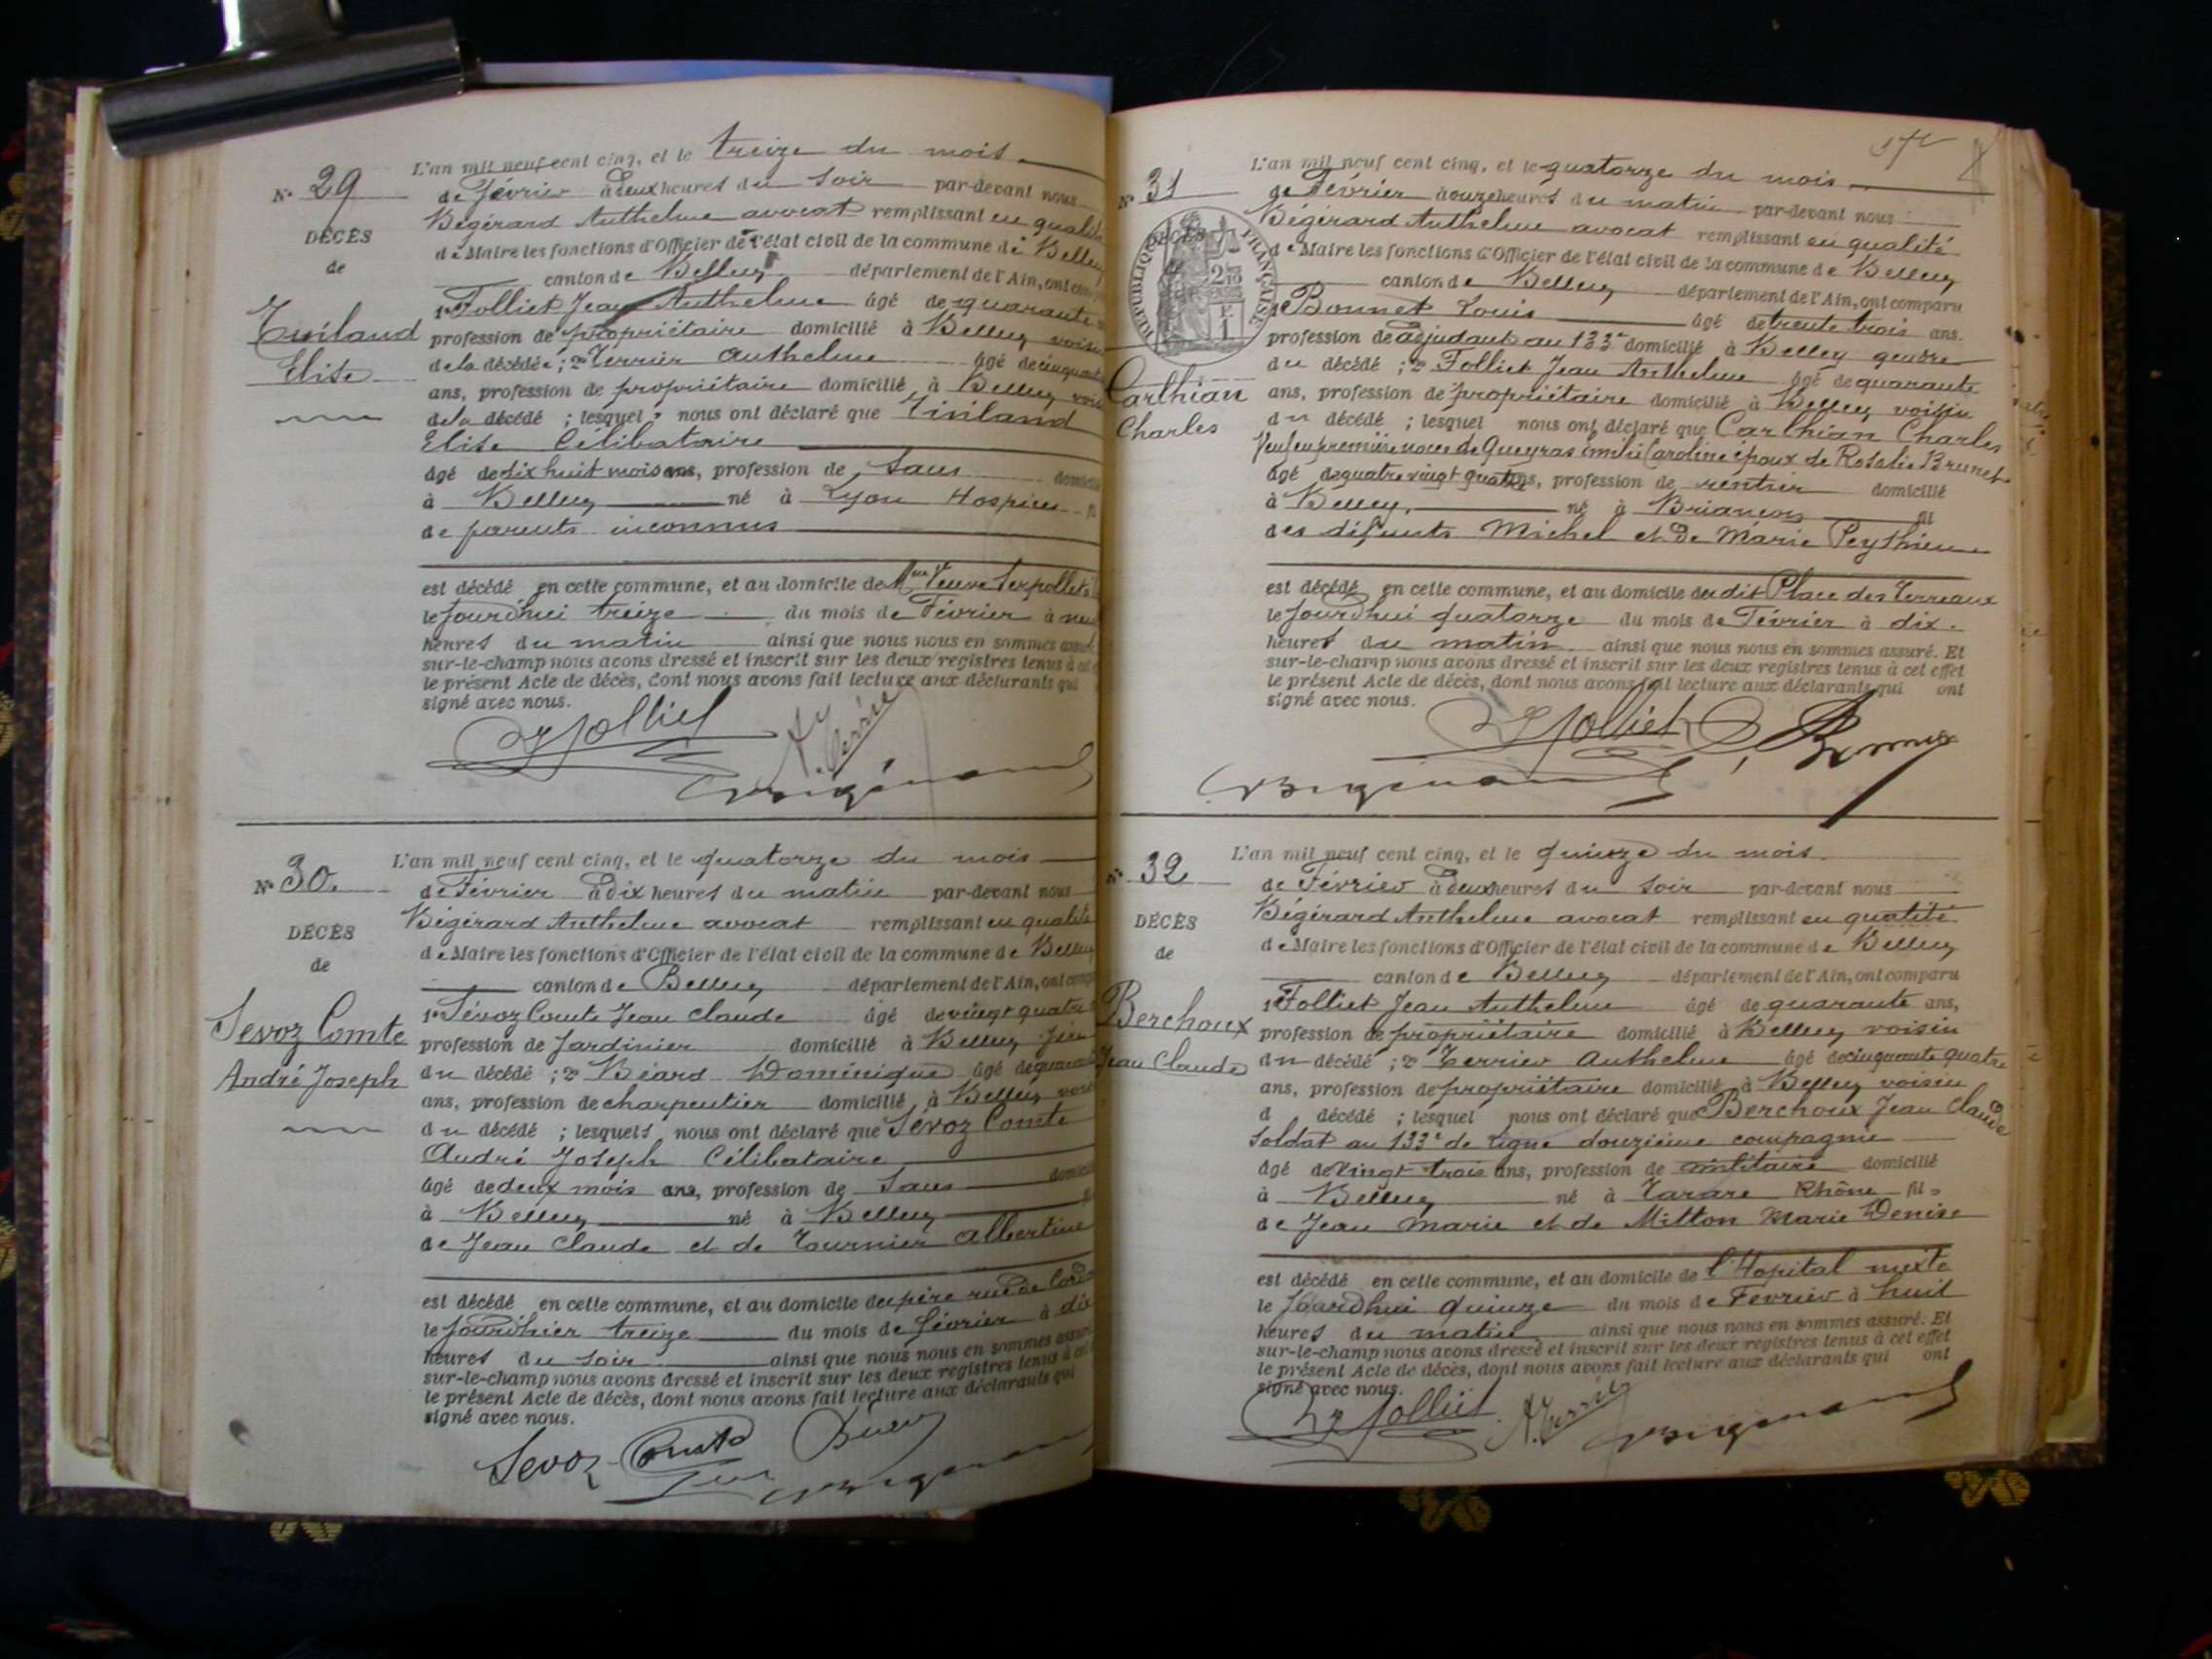 N° 29
DÉCÈS
de
Elise
L'an mil neuf cent cinq, et le treize du mois
de Février à deux heures du soir par-devant nous
Bégérard Anthelme avocat remplissant en qualité
de Maire les fonctions d'Officier de l'état civil de la commune de Belley
canton de Belley département de l'Ain, ont
1° Folliet Jean Anthelme âgé de quarante
profession de propriétaire domicilié à Belley voisin
de la décédée ; 2° Terrier Anthelme âgé de cinquante
ans, profession de propriétaire domicilié à Belley
de la décédé ; lesquels nous ont déclaré que
Elise Célibataire
âgé de dix huit mois ans, profession de Sans domicilié
à Belley né à Lyon Hospices
de parents inconnus
est décédé en cette commune, et au domicile de Mme Veuve Serpollet
le jourd'hui treize du mois de Février à neuf
heures du matin ainsi que nous nous en sommes assuré
sur-le-champ nous avons dressé et inscrit sur les deux registres tenus à cet
le présent Acte de décès, dont nous avons fait lecture aux déclarants qui
signé avec nous.
Folliet A. Terrier
Bégérard
N° 30
DÉCÈS
de
Sevoz Comte
André Joseph
L'an mil neuf cent cinq, et le quatorze du mois
de Février à dix heures du matin par-devant nous
Bégérard Anthelme avocat remplissant en qualité
de Maire les fonctions d'Officier de l'état civil de la commune de Belley
canton de Belley département de l'Ain, ont
1° Sévoz Comte Jean Claude âgé de vingt quatre
profession de Jardinier domicilié à Belley Père
du décédé ; 2° Béard Dominique âgé de quarante
ans, profession de charpentier domicilié à Belley
du décédé ; lesquels nous ont déclaré que Sévoz Comte
André Joseph Célibataire
âgé de deux mois ans, profession de Sans domicilié
à Belley né à Belley
de Jean Claude et de Tournier Albertine
est décédé en cette commune, et au domicile du père rue de
le jourd'hier treize du mois de février à dix
heures du soir ainsi que nous nous en sommes assuré
sur-le-champ nous avons dressé et inscrit sur les deux registres tenus à cet
le présent Acte de décès, dont nous avons fait lecture aux déclarants qui
signé avec nous.
Sevoz-Comte
Bégérard
N° 31
DÉCÈS
RÉPUBLIQUE FRANÇAISE
Carthian
Charles
L'an mil neuf cent cinq, et le quatorze du mois
de Février à onze heures du matin par-devant nous
Bégérard Anthelme avocat remplissant en qualité
de Maire les fonctions d'Officier de l'état civil de la commune de Belley
canton de Belley département de l'Ain, ont comparu
1° Bonnet Louis âgé de trente trois ans.
profession de adjudant au 133e domicilié à Belley gendre
du décédé ; 2° Folliet Jean Anthelme âgé de quarante
ans, profession de propriétaire domicilié à Belley voisin
du décédé ; lesquel nous ont déclaré que Carthian Charles
Veuf en première noces de Queyras Emilie Caroline époux de Rosalie Brunet
âgé de quatre vingt quatre ans, profession de rentier domicilié
à Belley, né à Briançon fil
des défunts Michel et de Marie Peythieu
est décédé en cette commune, et au domicile dudit Place des Terreaux
le jourd'hui quatorze du mois de Février à dix
heures du matin ainsi que nous nous en sommes assuré. Et
sur-le-champ nous avons dressé et inscrit sur les deux registres tenus à cet effet
le présent Acte de décès, dont nous avons fait lecture aux déclarants qui ont
signé avec nous.
Folliet Bonnet
Bégérard
N° 32
DÉCÈS
de
Berchoux
Jean Claude
L'an mil neuf cent cinq, et le quinze du mois
de Février à deux heures du soir par-devant nous
Bégérard Anthelme avocat remplissant en qualité
de Maire les fonctions d'Officier de l'état civil de la commune de Belley
canton de Belley département de l'Ain, ont comparu
1° Folliet Jean Anthelme âgé de quarante ans,
profession de propriétaire domicilié à Belley voisin
du décédé ; 2° Terrier Anthelme âgé de cinquante quatre
ans, profession de propriétaire domicilié à Belley voisin
d décédé ; lesquel nous ont déclaré que Berchoux Jean Claude
Soldat au 133e de ligne douzième compagnie
âgé de vingt trois ans, profession de militaire domicilié
à Belley né à Tarare Rhône fils
de Jean Marie et de Mitton Marie Denise
est décédé en cette commune, et au domicile de l'Hopital mixte
le jourd'hui quinze du mois de Février à huit
heures du matin ainsi que nous nous en sommes assuré. Et
sur-le-champ nous avons dressé et inscrit sur les deux registres tenus à cet effet
le présent Acte de décès, dont nous avons fait lecture aux déclarants qui ont
signé avec nous.
Folliet A. Terrier Bégérard